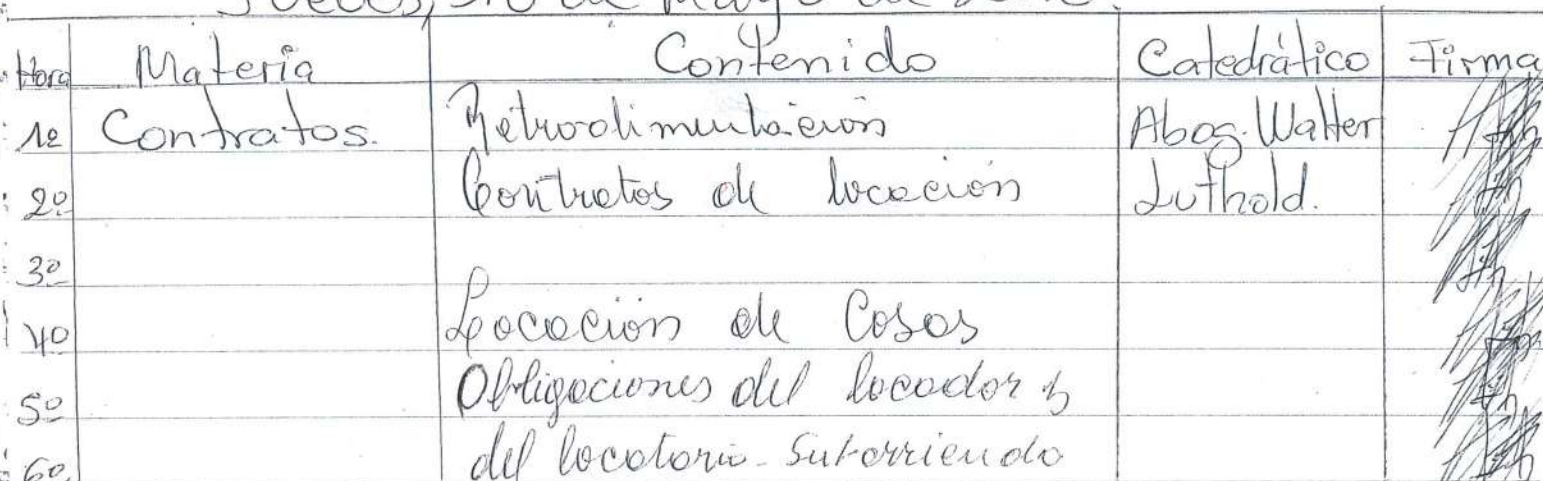 de Mayo de
Hora Materia Contenido Catedrático Firma
1º Contratos. Retroalimentación Abog. Walter
2º Contratos de locación Luthold.
3º
4º Locación de Cosas
5º Obligaciones del locador y
6º del locatario - Subarriendo